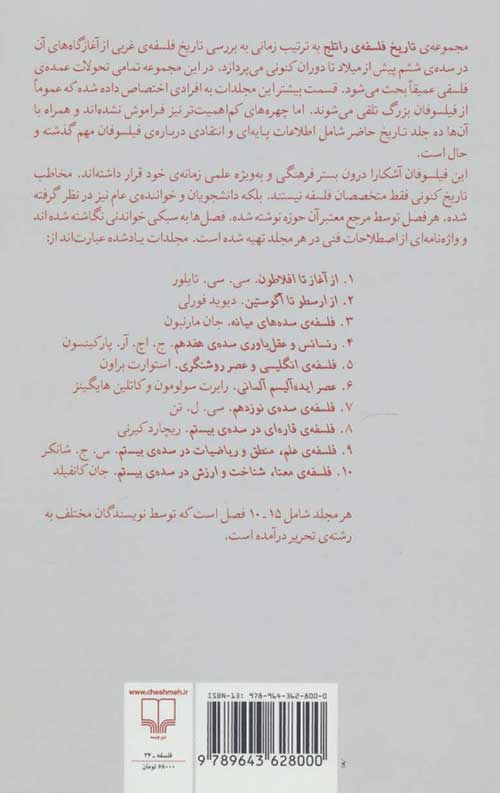 مجموعه‌ی تاریخ فلسفه‌ی راتلج به ترتیب زمانی به بررسی تاریخ فلسفه‌ی غربی از آغازگاه‌های آن
در سده‌ی ششم پیش از میلاد تا دوران کنونی می‌پردازد. در این مجموعه تمامی تحولات عمده‌ی
فلسفی عمیقاً بحث می‌شود. قسمت بیشتر این مجلدات به افرادی اختصاص داده شده که عموماً
از فیلسوفان بزرگ تلقی می‌شوند. اما چهره‌های کم‌اهمیت‌تر نیز فراموش نشده‌اند و همراه با
آن‌ها ده جلد تاریخ حاضر شامل اطلاعات پایه‌ای و انتقادی درباره‌ی فیلسوفان مهم گذشته و
حال است.
این فیلسوفان آشکارا درون بستر فرهنگی و به‌ویژه علمی زمانه‌ی خود قرار داشته‌اند. مخاطب
تاریخ کنونی فقط متخصصان فلسفه نیستند. بلکه دانشجویان و خواننده‌ی عام نیز در نظر گرفته
شده. هر فصل توسط مرجع معتبر آن حوزه نوشته شده. فصل‌ها به سبکی خواندنی نگاشته شده اند
و واژه‌نامه‌ای از اصطلاحات فنی در هر مجلد تهیه شده است. مجلدات یادشده عبارت‌اند از:
۱. از آغاز تا افلاطون. سی. سی. تایلور
۲. از ارسطو تا آگوستین. دیوید فورلی
۳. فلسفه‌ی سده‌های میانه. جان مارنبون
۴. رنسانس و عقل‌باوری سده‌ی هفدهم. ج. اچ. آر. پارکینسون
۵. فلسفه‌ی انگلیسی و عصر روشنگری. استوارت براون
۶. عصر ایده‌آلیسم آلمانی. رابرت سولومون و کاتلین هایگینز
۷. فلسفه‌ی سده‌ی نوزدهم. سی. ل. تن
۸. فلسفه‌ی قاره‌ای در سده‌ی بیستم. ریچارد کیرنی
۹. فلسفه‌ی علم، منطق و ریاضیات در سده‌ی بیستم. س. ج. شانکر
۱۰. فلسفه‌ی معنا، شناخت و ارزش در سده‌ی بیستم. جان کانفیلد
هر مجلد شامل ۱۵ـ۱۰ فصل است که توسط نویسندگان مختلف به
رشته‌ی تحریر درآمده است.
www.cheshmeh.ir
نشر چشمه
فلسفه ـ ۲۴
۶۸۰۰۰ تومان
ISBN-13: 978-964-362-800-0
9 789643 628000